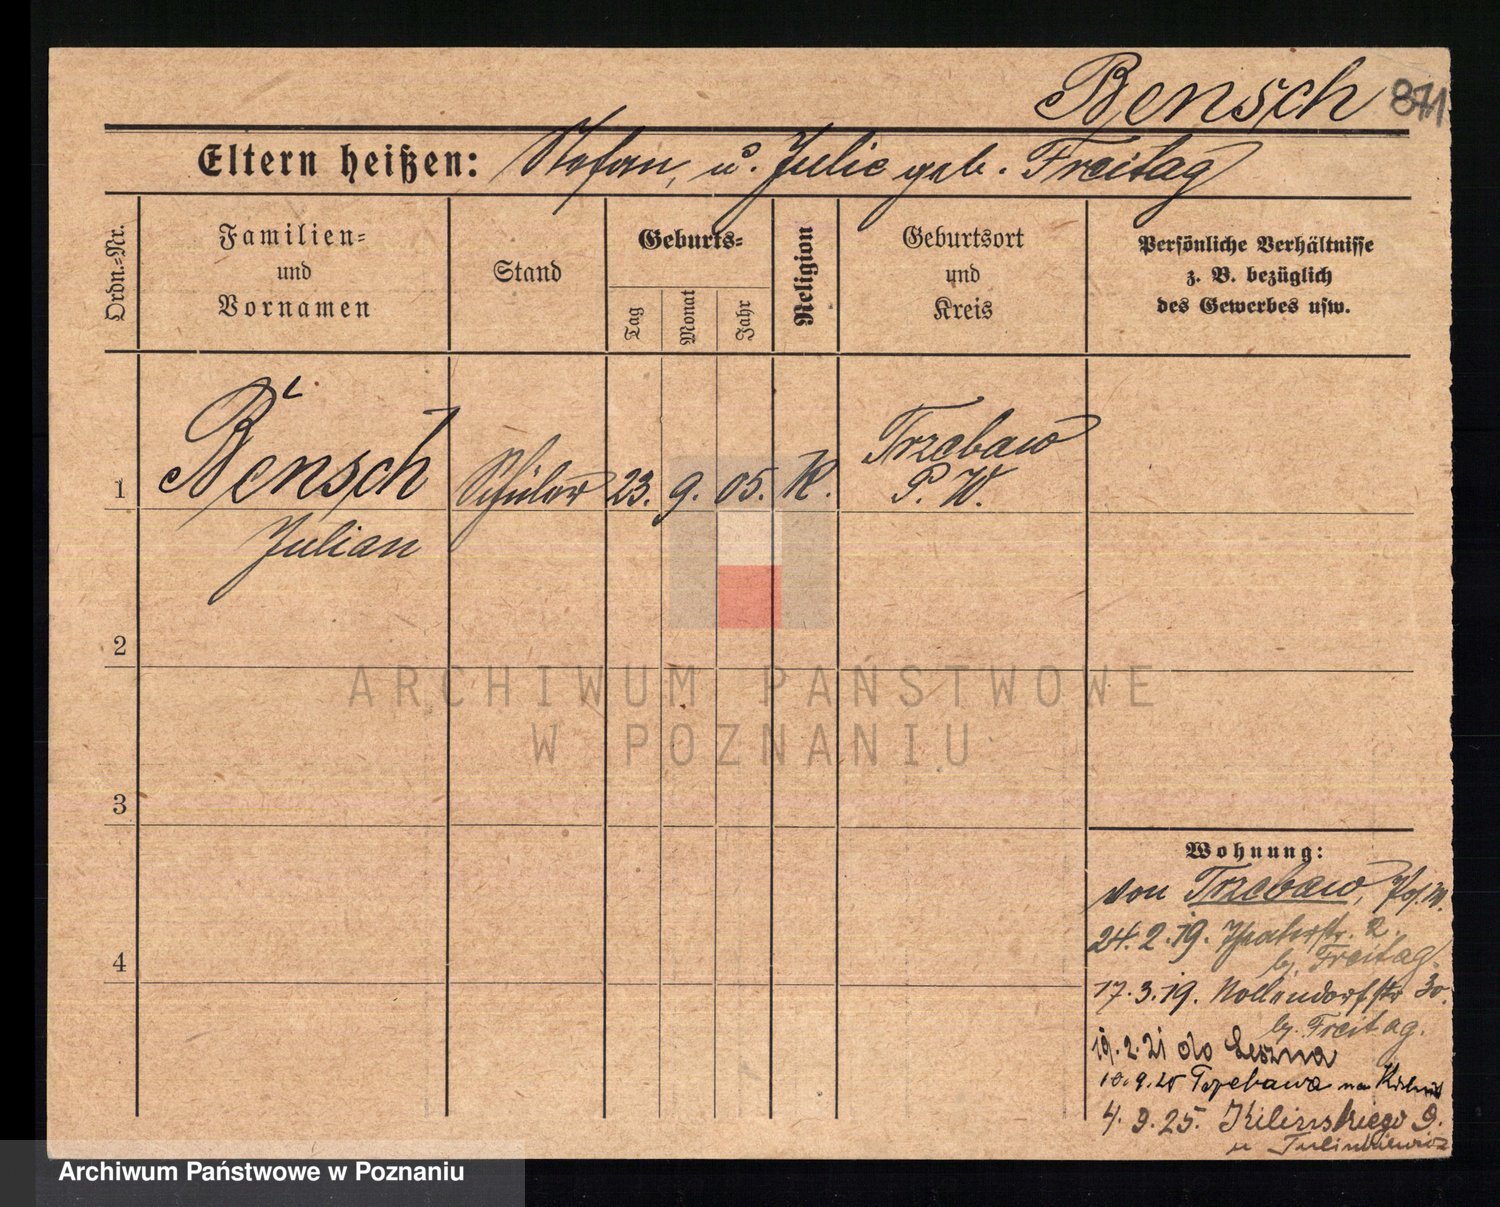 Bensch 871
Eltern heißen: Stefan, u. Julie geb. Freitag
Ordn.-Nr.
Familien-
und
Vornamen
Stand
Geburts-
Tag
Monat
Jahr
Religion
Geburtsort
und
Kreis
Persönliche Verhältnisse
z. B. bezüglich
des Gewerbes usw.
1 Bensch Schüler 23. 9. 05. K. Trzebaw
P. W.
Julian
2
3
4
Wohnung:
von Trzebaw, Pos. W.
24.2.19. Theaterstr. 2.
b. Freitag.
17.3.19. Nollendorfstr 30.
b. Freitag.
19.2.21 do Leszna
Trzebawa
4.9.25. Kilinskiego 9.
u
ARCHIWUM PAŃSTWOWE
W POZNANIU
Archiwum Państwowe w Poznaniu